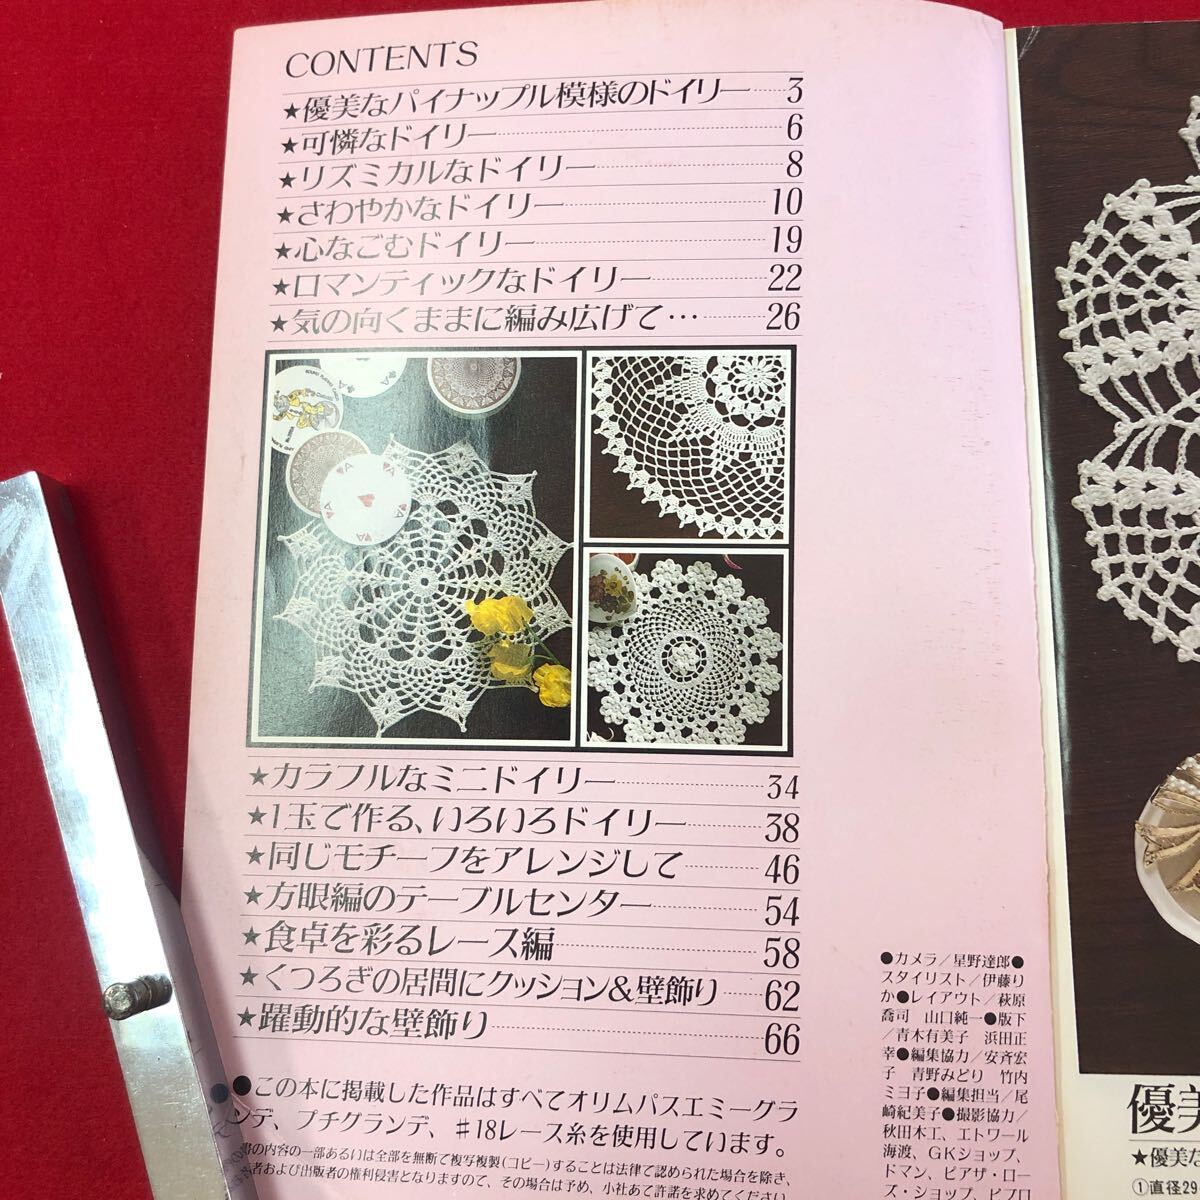 CONTENTS
★優美なパイナップル模様のドイリー 3
★可憐なドイリー 6
★リズミカルなドイリー 8
★さわやかなドイリー 10
★心なごむドイリー 19
★ロマンティックなドイリー 22
★気の向くままに編み広げて… 26
★カラフルなミニドイリー 34
★1玉で作る、いろいろドイリー 38
★同じモチーフをアレンジして 46
★方眼編のテーブルセンター 54
★食卓を彩るレース編 58
★くつろぎの居間にクッション&壁飾り 62
★躍動的な壁飾り 66
●この本に掲載した作品はすべてオリムパスエミーグラ
ンデ、プチグランデ、#18レース糸を使用しています。
書の内容の一部あるいは全部を無断で複写複製(コピー)することは法律で認められた場合を除き、
者および出版者の権利侵害となりますので、その場合は予め、小社あて許諾を求めてください
●カメラ/星野達郎●
スタイリスト/伊藤り
か●レイアウト/萩原
喬司 山口純一●版下
/青木有美子 浜田正
幸●編集協力/安斉宏
子 青野みどり 竹内
ミヨ子●編集担当/尾
崎紀美子●撮影協力/
秋田木工、エトワール
海渡、GKショップ、
ドマン、ピアザ・ロー
ズ・ショップ、ビブロ
優美
★優美な
①直径29